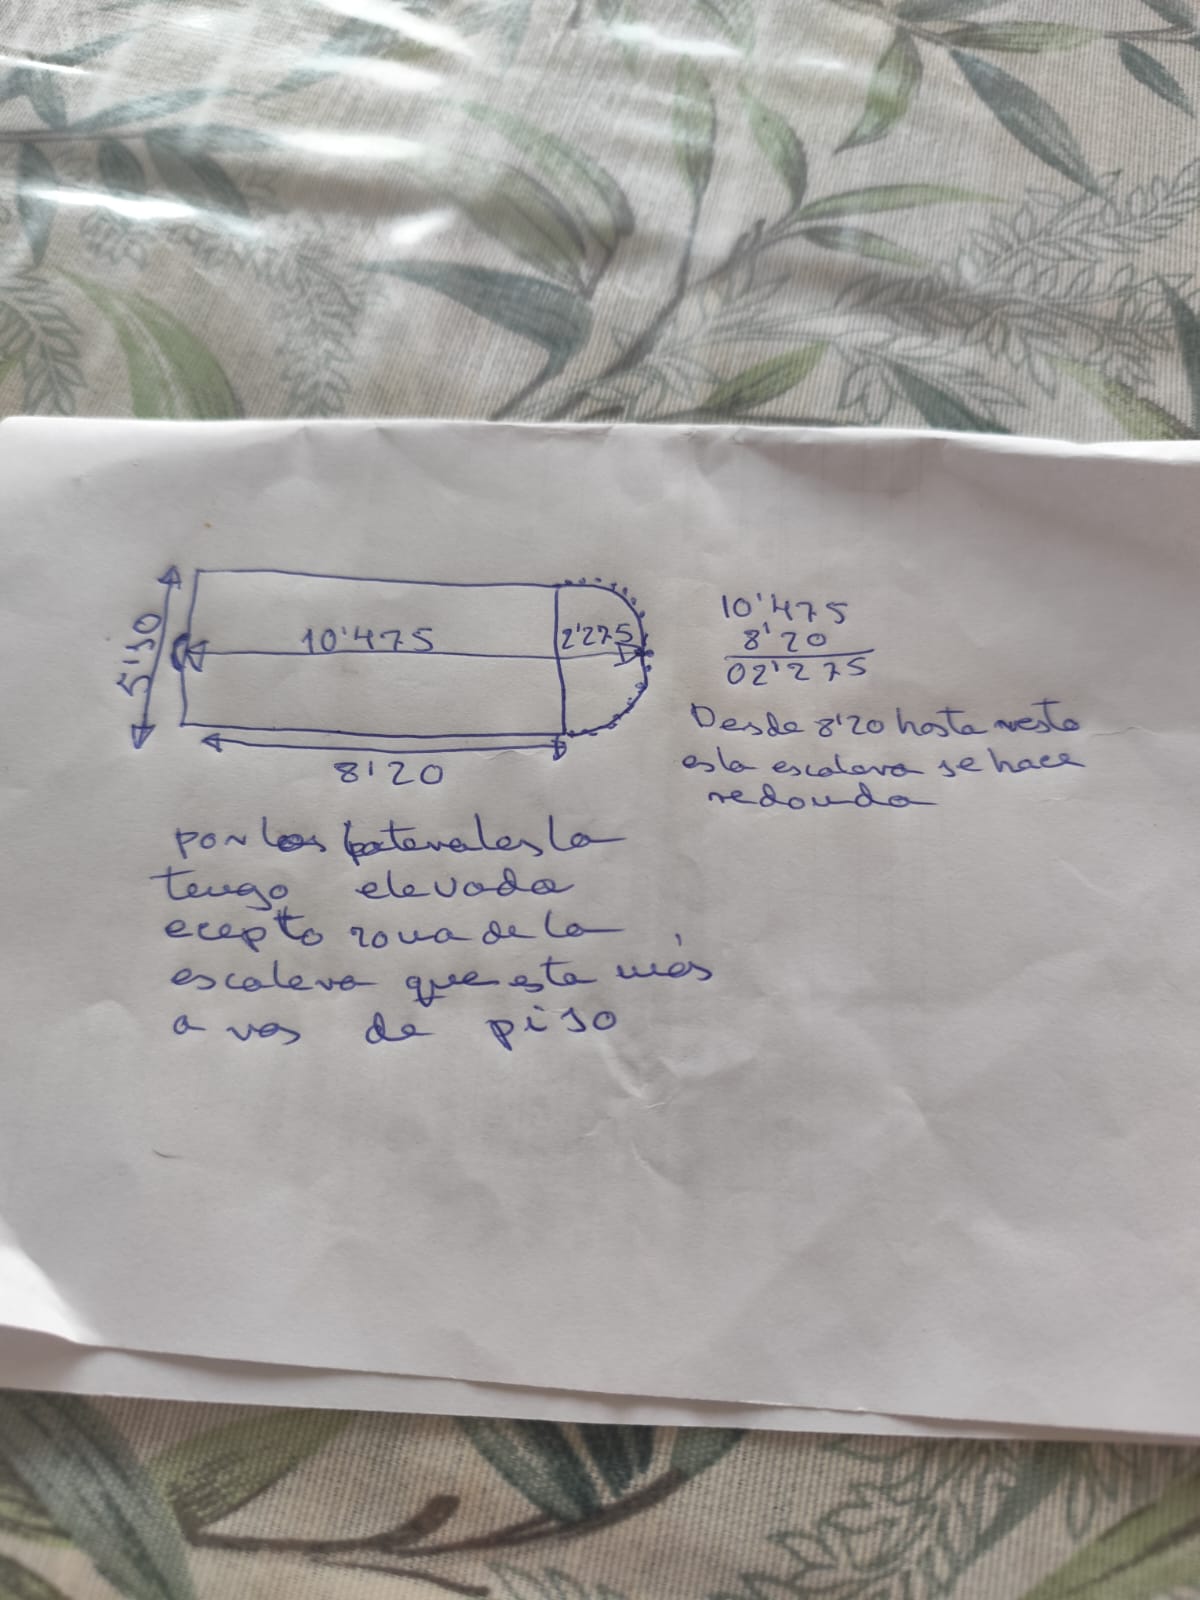 5'30
10'475
2'275
8'20
10'475
8'20
02'275
Desde 8'20 hasta resto
esla escalera se hace
redonda
por los laterales la
tengo elevada
ecepto zona de la
escalera que esta más
a ras de piso